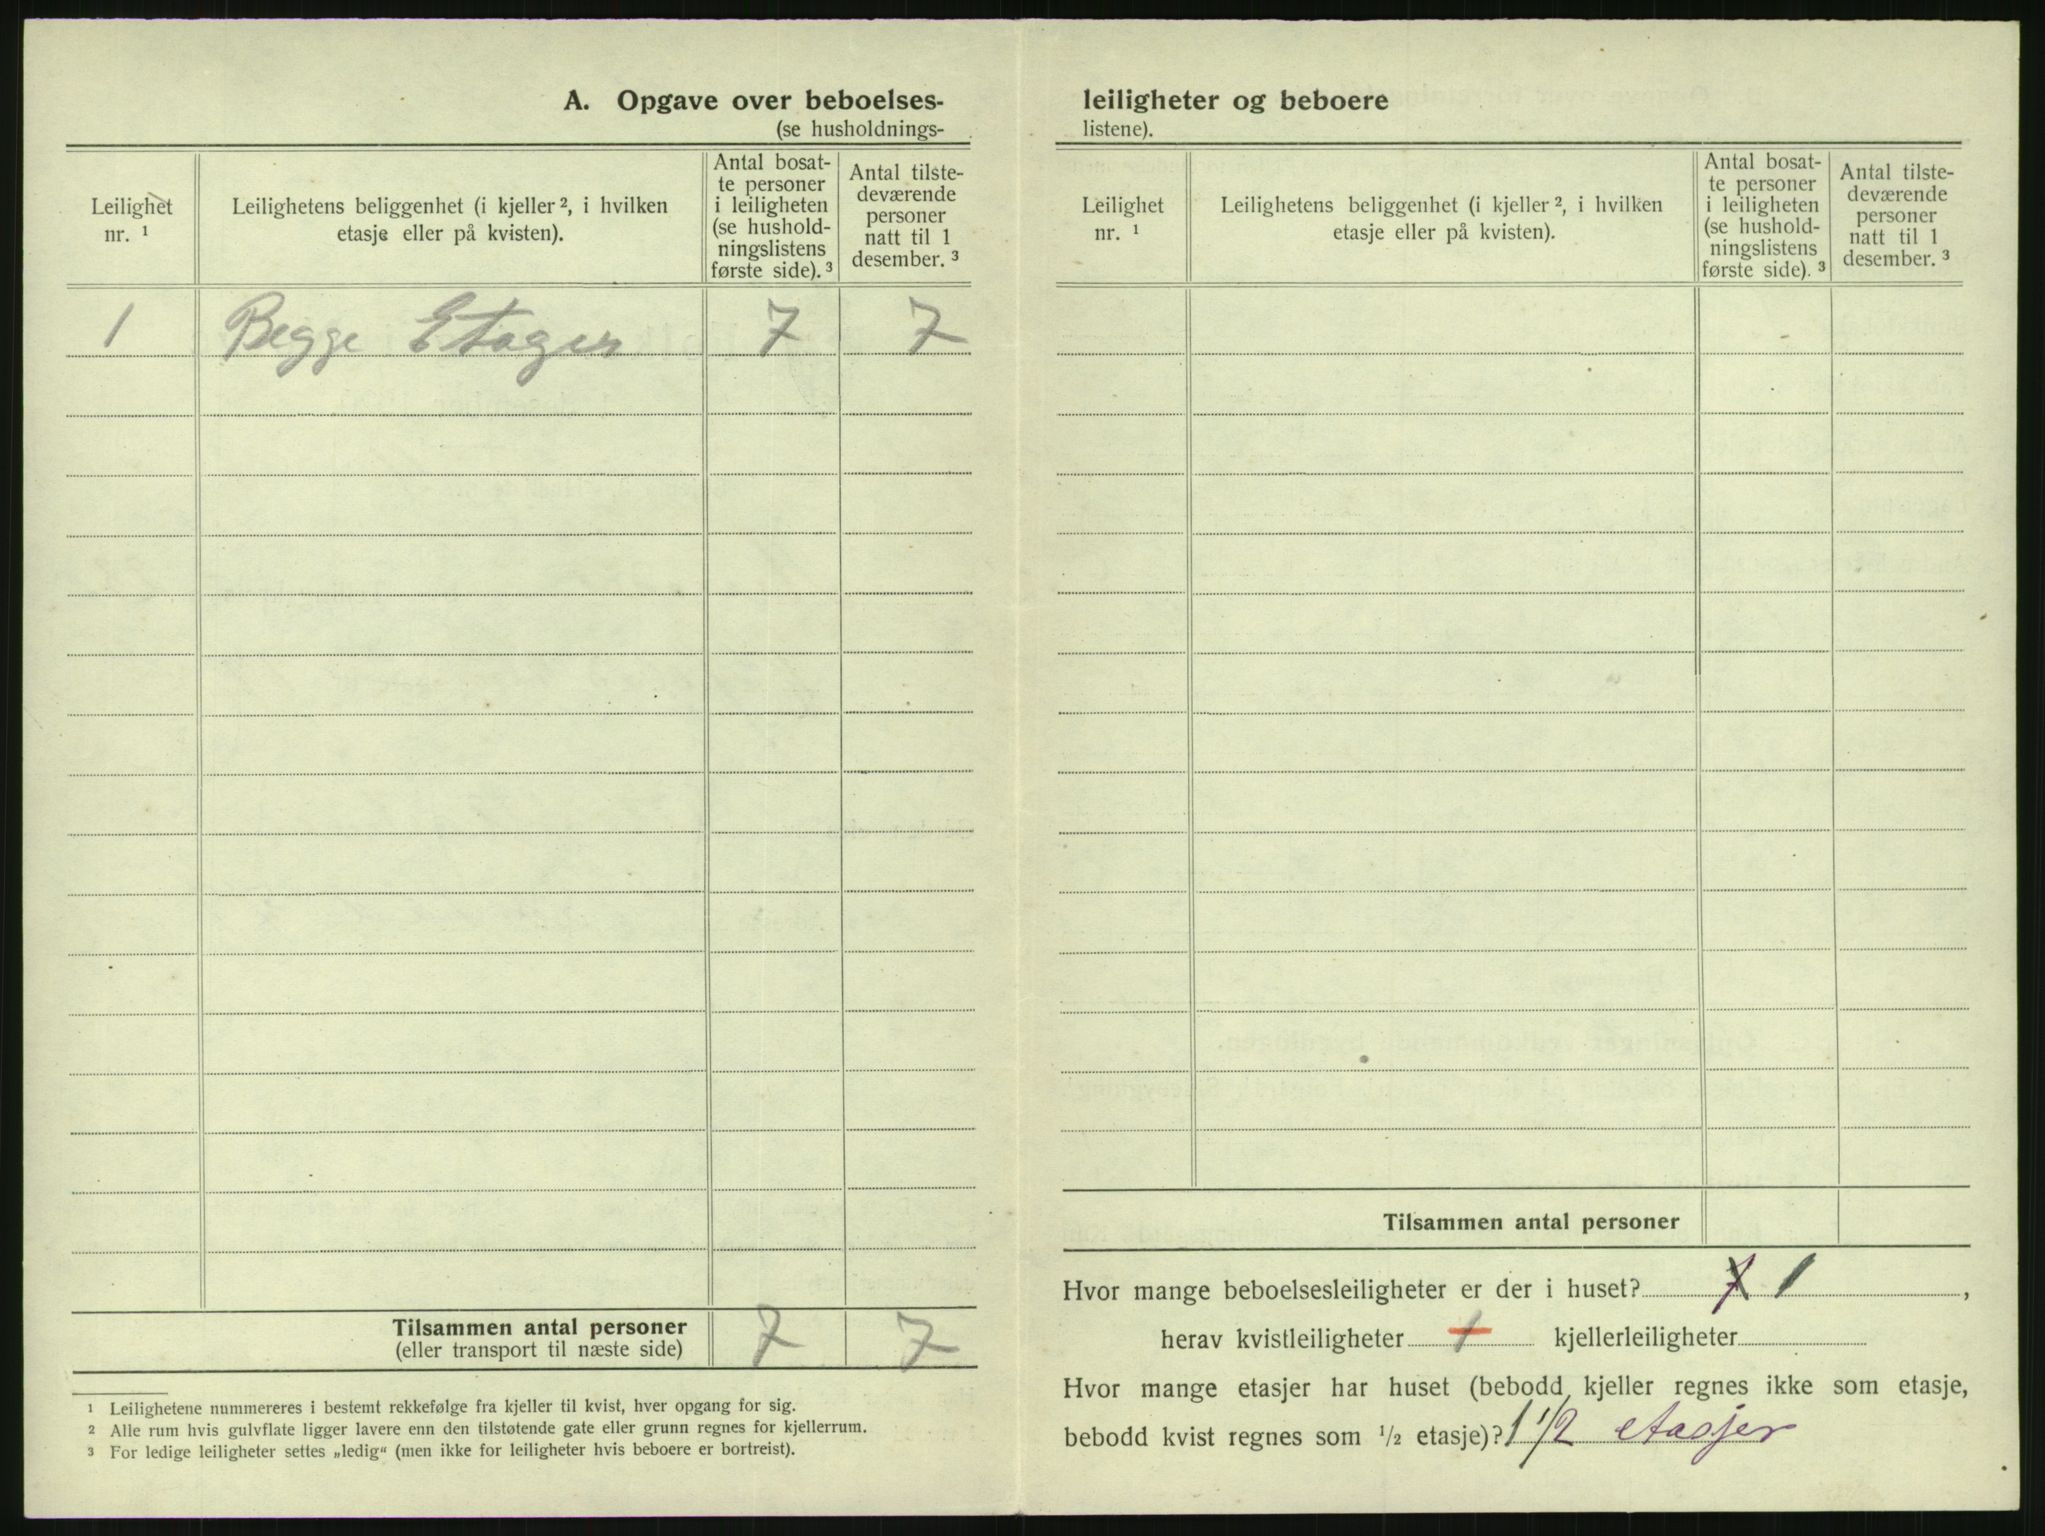 A. Opgave over beboelses-
(se husholdnings-
Leilighet
nr. ¹
Leilighetens beliggenhet (i kjeller ², i hvilken
etasje eller på kvisten).
Antal bosat-
te personer
i leiligheten
(se hushold-
ningslistens
første side). ³
Antal tilste-
deværende
personer
natt til 1
desember. ³
1 Begge Etager 7 7
Tilsammen antal personer 7 7
(eller transport til næste side)
¹ Leilighetene nummereres i bestemt rekkefølge fra kjeller til kvist, hver opgang for sig.
² Alle rum hvis gulvflate ligger lavere enn den tilstøtende gate eller grunn regnes for kjellerrum.
³ For ledige leiligheter settes „ledig“ (men ikke for leiligheter hvis beboere er bortreist).
leiligheter og beboere
listene).
Leilighet
nr. ¹
Leilighetens beliggenhet (i kjeller ², i hvilken
etasje eller på kvisten).
Antal bosat-
te personer
i leiligheten
(se hushold-
ningslistens
første side). ³
Antal tilste-
deværende
personer
natt til 1
desember. ³
Tilsammen antal personer
Hvor mange beboelsesleiligheter er der i huset? 7 1,
herav kvistleiligheter 1 kjellerleiligheter
Hvor mange etasjer har huset (bebodd kjeller regnes ikke som etasje,
bebodd kvist regnes som ½ etasje)? 1 1/2 etasjer